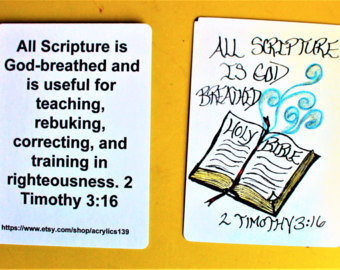 All Scripture is
God-breathed and
is useful for
teaching,
rebuking,
correcting, and
training in
righteousness. 2
Timothy 3:16
https://www.etsy.com/shop/acrylics139
ALL SCRIPTURE
IS GOD
BREATHED
HOLY BIBLE
2 TIMOTHY 3:16